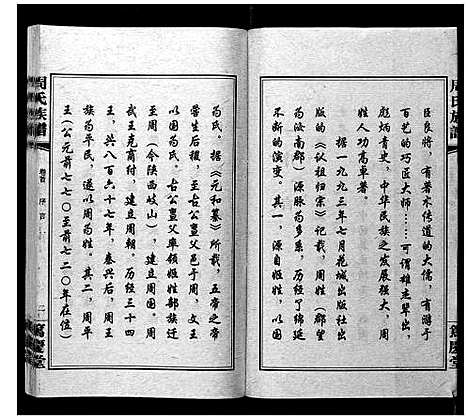 周氏族譜
臣良將，有著术传道的大儒，有游于
百艺的巧匠大师……可谓雄杰辈出，
彪炳青史，中华民族之发展强大，周
姓人功高卓著。
据一九九三年七月花城出版社出
版的《认祖归宗》记载，周姓（郡望
为汝南郡）源脉为多系，历经了绵延
不断的演变。其一，源自姬姓，以国
篤慶堂
为氏。据《元和纂》所载，五帝之帝
喾生后稷，至古公亶父邑于周，文王
以国为氏。古公亶父率领姬姓部族迁
至周（今陕西岐山），建立周国。周
武王克商纣，建立周朝。历经三十四
王，共八百六十七年，秦兴后，周王
族为平民，遂以周为姓。其二，周平
王（公元前七七〇至前七二〇年在位）
周氏族譜
卷首
序言
二
篤慶堂